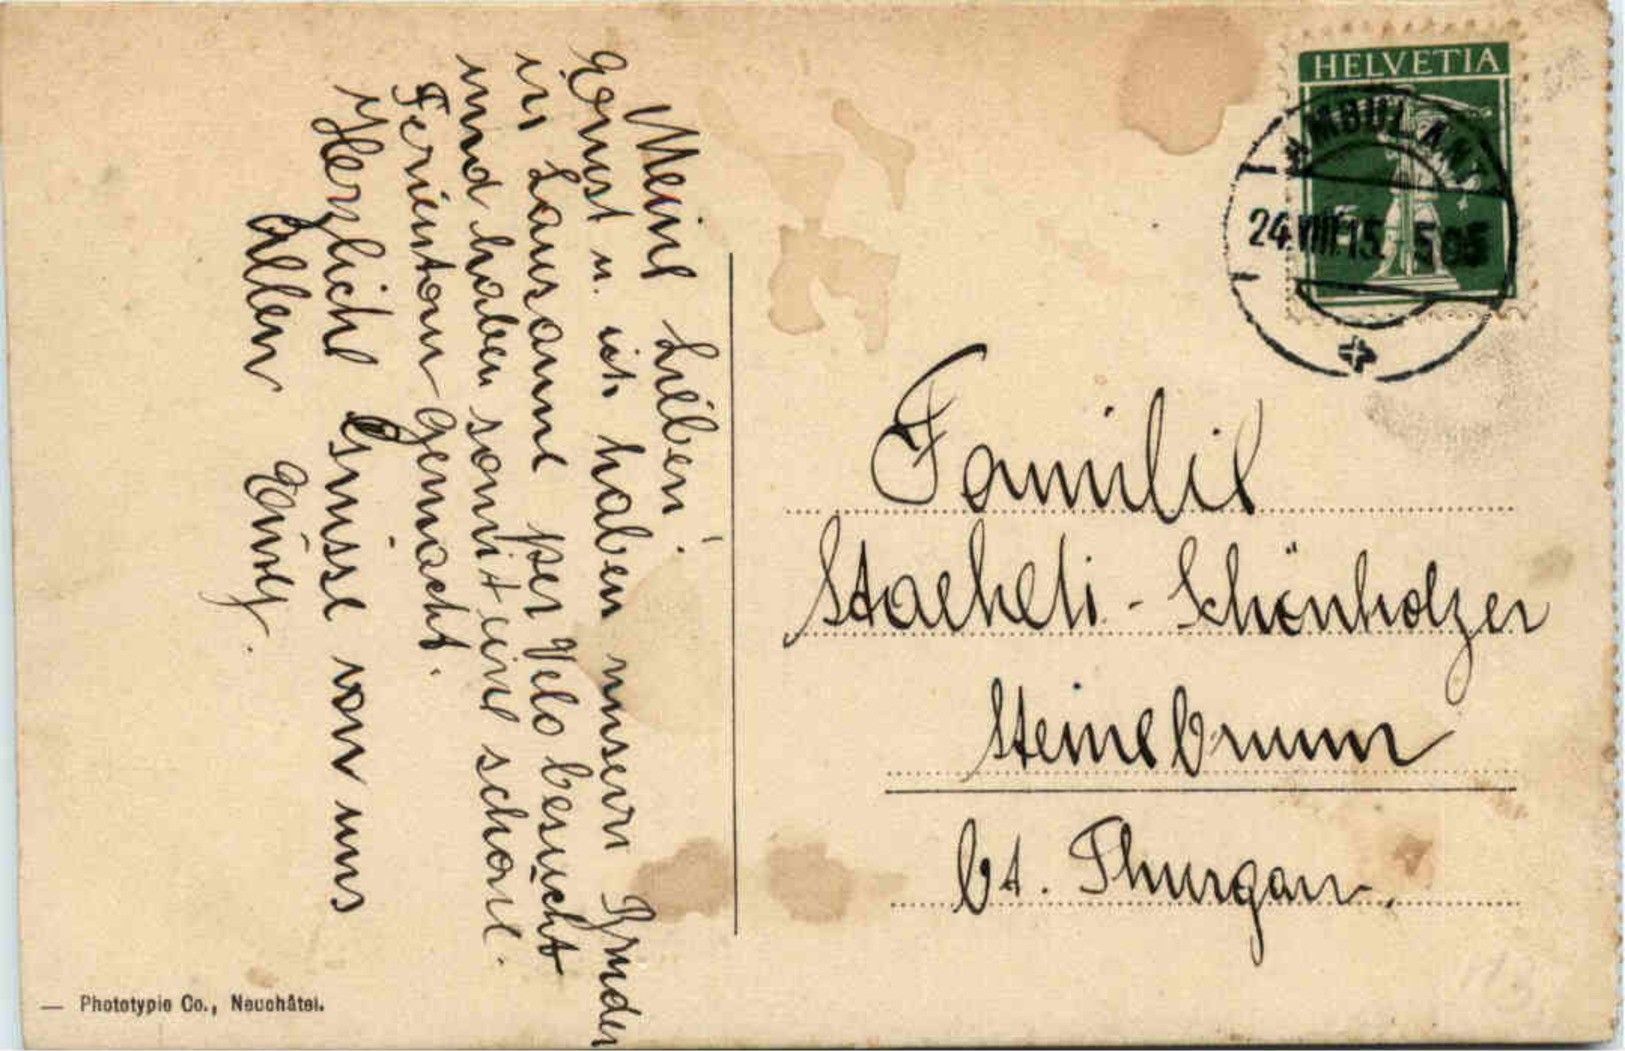 Meine Lieben!
Ernst u. ich haben unsern Bruder
in Lausanne per Velo besucht
und haben somit eine schöne
Ferientour gemacht.
Herzliche Grüsse von uns
Allen
HELVETIA
AMBULANT
24.VIII.15. 505
Familie
Staeheli - Schönholzer
Steinebrunn
Kt. Thurgau.
— Phototypie Co., Neuchâtel.